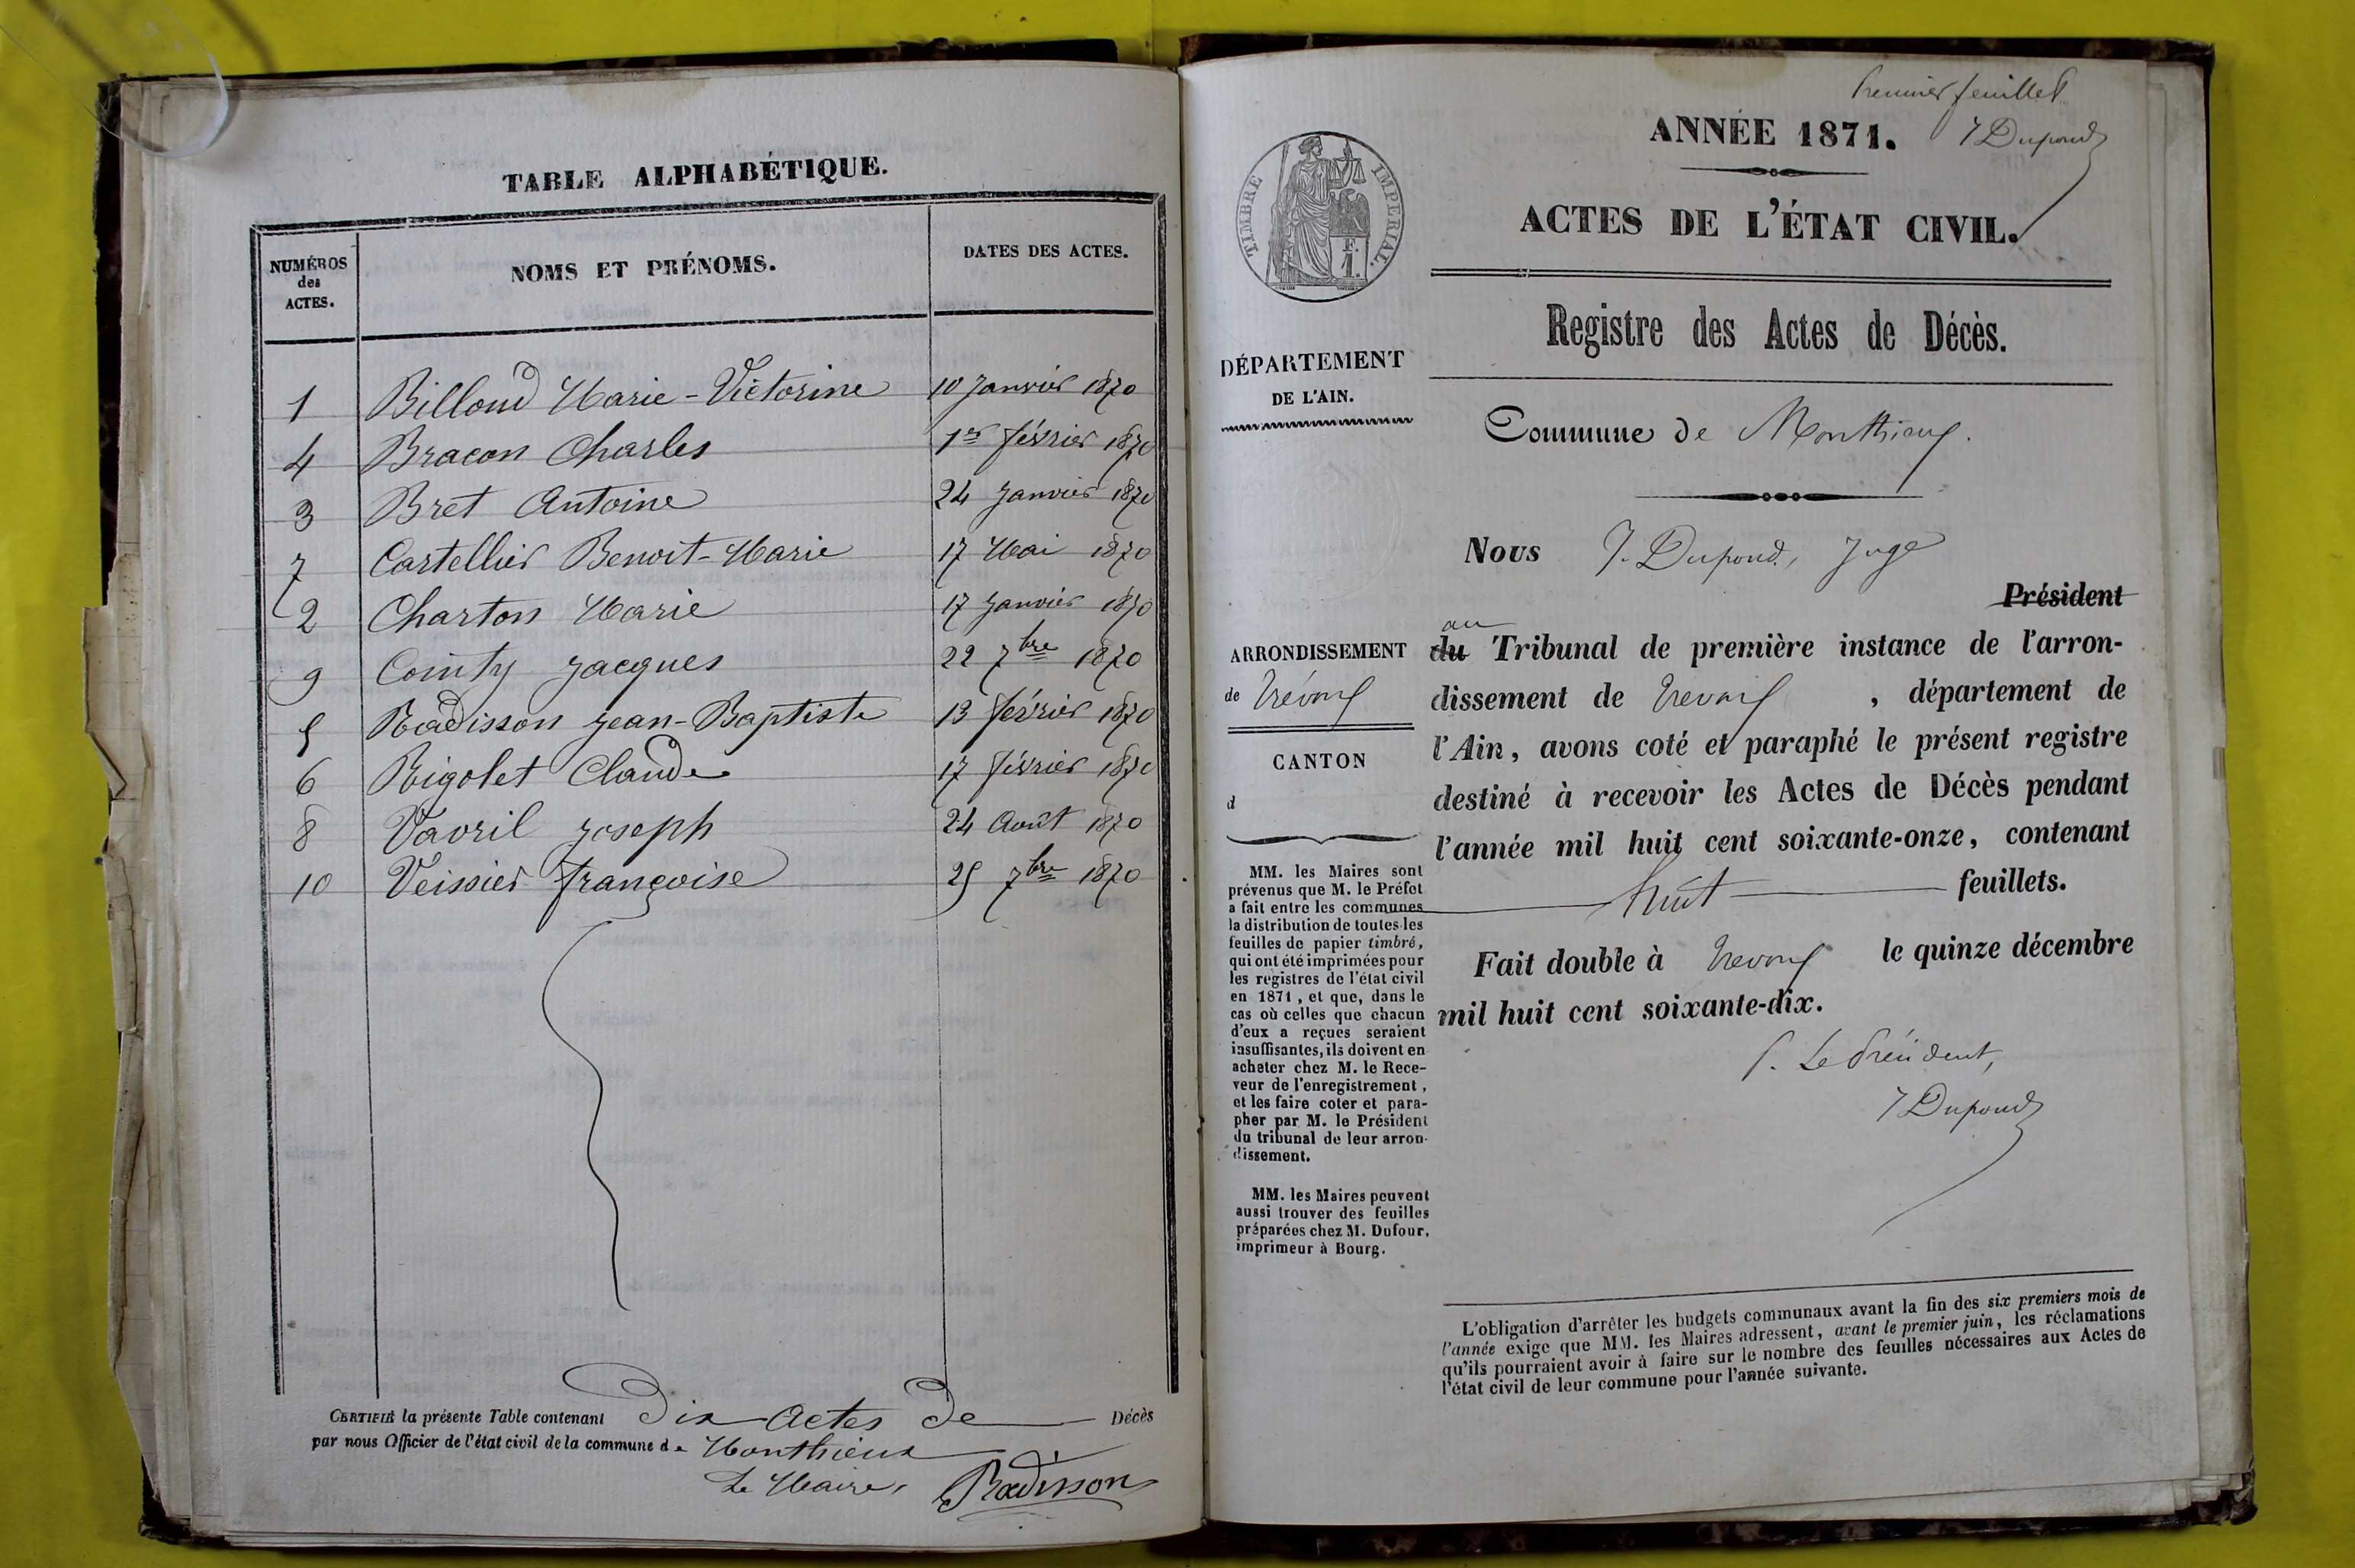 TABLE ALPHABÉTIQUE.
NUMÉROS
des
ACTES.
NOMS ET PRÉNOMS.
DATES DES ACTES.
1 Billoud Marie-Victorine 10 Janvier 1870
4 Bracon Charles 1er février 1870
3 Bret Antoine 24 Janvier 1870
7 Cartellier Benoit-Marie 17 Mai 1870
2 Charton Marie 17 Janvier 1870
9 Cointy Jacques 22 7bre 1870
5 Radisson Jean-Baptiste 13 février 1870
6 Rigolet Claude 17 février 1870
8 Vavril Joseph 24 Août 1870
10 Veissier françoise 25 7bre 1870
CERTIFIÉ la présente Table contenant Dix Actes De Décès
par nous Officier de l'état civil de la commune de Monthieux
Le Maire, Radisson
Premier feuillet
J Dupond
ANNÉE 1871.
ACTES DE L'ÉTAT CIVIL.
TIMBRE IMPERIAL.
F.
1.
Registre des Actes de Décès.
DÉPARTEMENT
DE L'AIN.
Commune de Monthieux.
Nous J. Dupond, Juge
Président
au
du Tribunal de première instance de l'arron-
dissement de Trevoux, département de
l'Ain, avons coté et paraphé le présent registre
destiné à recevoir les Actes de Décès pendant
l'année mil huit cent soixante-onze, contenant
huit feuillets.
Fait double à Trevoux le quinze décembre
mil huit cent soixante-dix.
P. Le Président,
J Dupond
ARRONDISSEMENT
de Trévoux
CANTON
d
MM. les Maires sont
prévenus que M. le Préfet
a fait entre les communes
la distribution de toutes les
feuilles de papier timbré,
qui ont été imprimées pour
les registres de l'état civil
en 1871, et que, dans le
cas où celles que chacun
d'eux a reçues seraient
insuffisantes, ils doivent en
acheter chez M. le Rece-
veur de l'enregistrement,
et les faire coter et para-
pher par M. le Président
du tribunal de leur arron-
dissement.
MM. les Maires peuvent
aussi trouver des feuilles
préparées chez M. Dufour,
imprimeur à Bourg.
L'obligation d'arrêter les budgets communaux avant la fin des six premiers mois de
l'année exige que MM. les Maires adressent, avant le premier juin, les réclamations
qu'ils pourraient avoir à faire sur le nombre des feuilles nécessaires aux Actes de
l'état civil de leur commune pour l'année suivante.